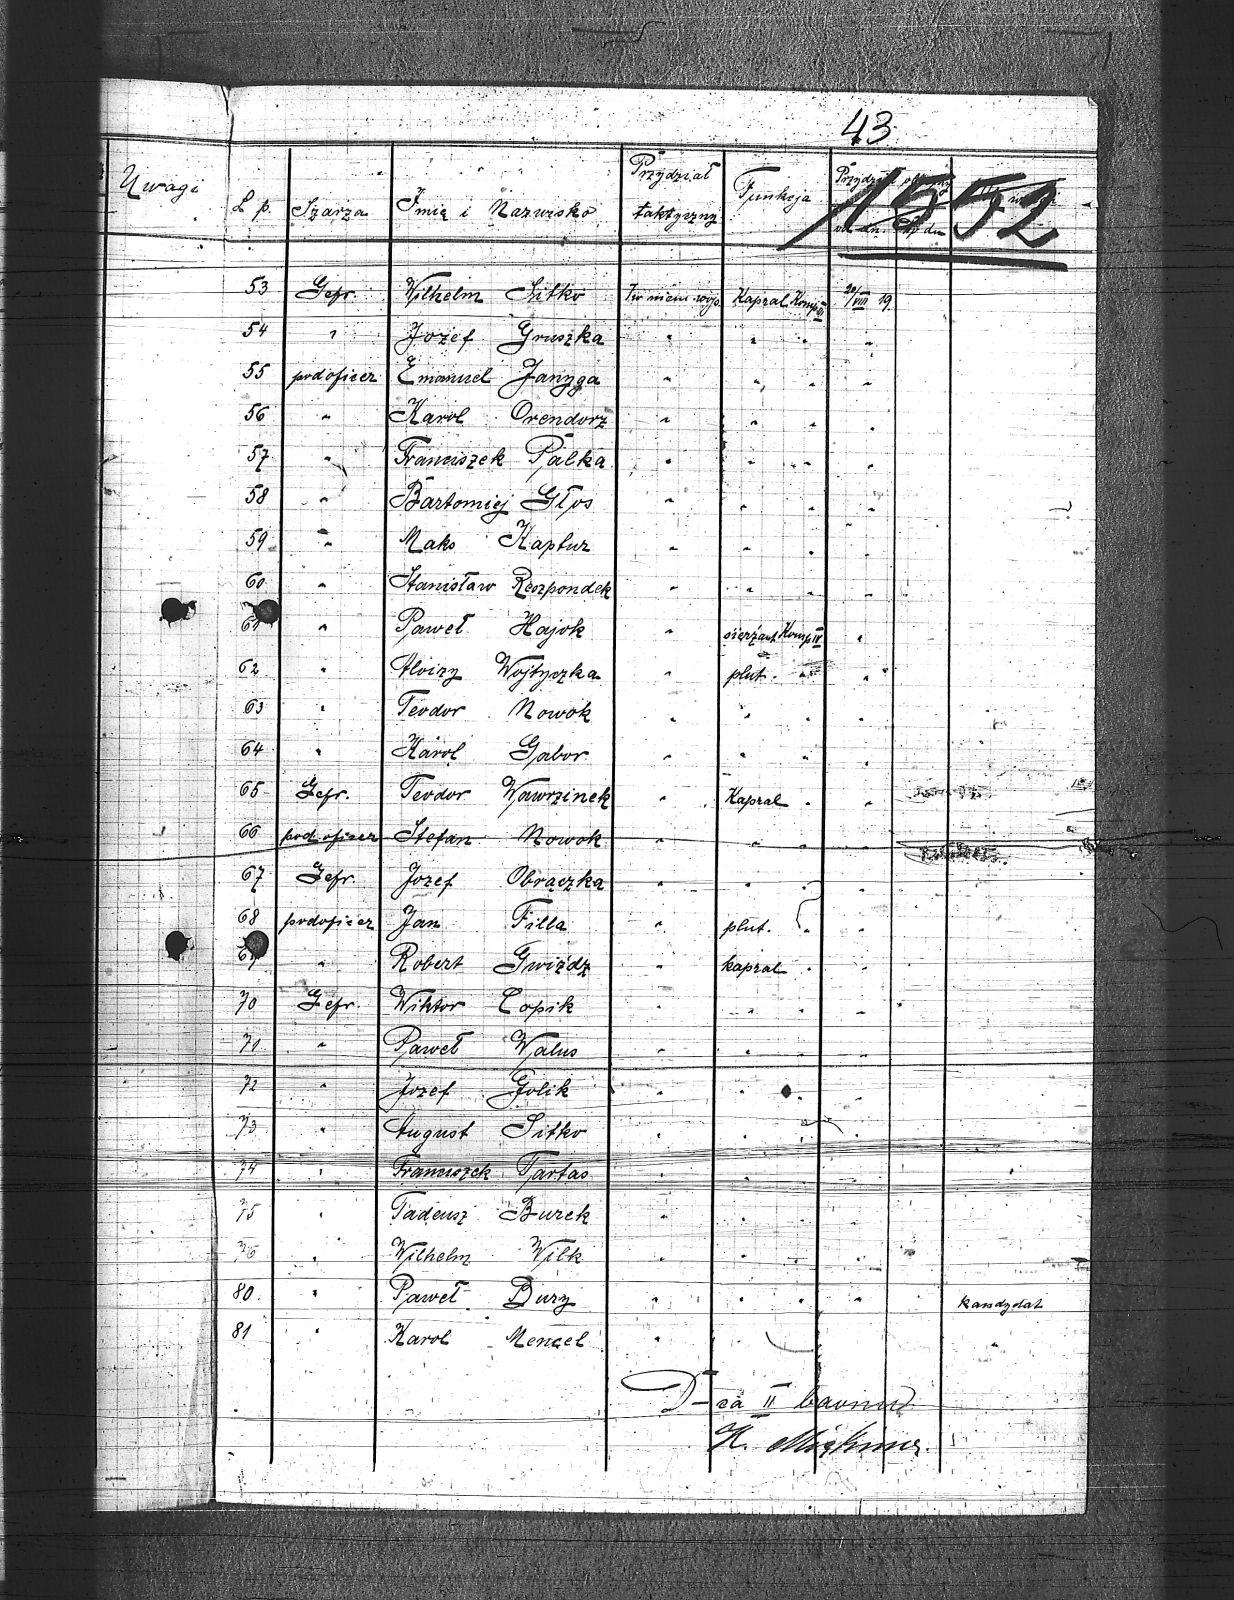 43
1552
Uwagi
L. p. Szarza Imię i Nazwisko Przydział taktyczny Funkcja
53 Gefr. Wilhelm Sitko Kapral Komp. III 20/VIII 19.
54 " Jozef Gruszka " " " "
55 podoficer Emanuel Janyga " " " "
56 " Karol Orendorz " " " "
57 " Franciszek Palka " " " "
58 " Bartomiej Głos " " " "
59 " Maks Kaptur " " " "
60 " Stanisław Rospondek " " " "
61 " Paweł Hajok " sierżant Komp IV "
62 " Aloizy Wojtyczka " plut. " "
63 " Teodor Nowok " " " "
64 " Karol Gabor " " " "
65 Gefr. Teodor Wawrzinek " Kapral " "
66 podoficer Stefan Nowok " " " "
67 Gefr. Jozef Obrączka " " " "
68 podoficer Jan Filla " plut. " "
69 " Robert Gwiżdz " kapral " "
70 Gefr. Wiktor Copik " " " "
71 " Paweł Walus " " " "
72 " Jozef Golik " " " "
73 " August Sitko " " " "
74 " Franciszek Tartas " " " "
75 " Tadeusz Burek " " " "
76 " Wilhelm Wilk " " " "
80. " Paweł Bury " " " " kandydat
81 " Karol Mencel " "
D-ca II baonu
K.